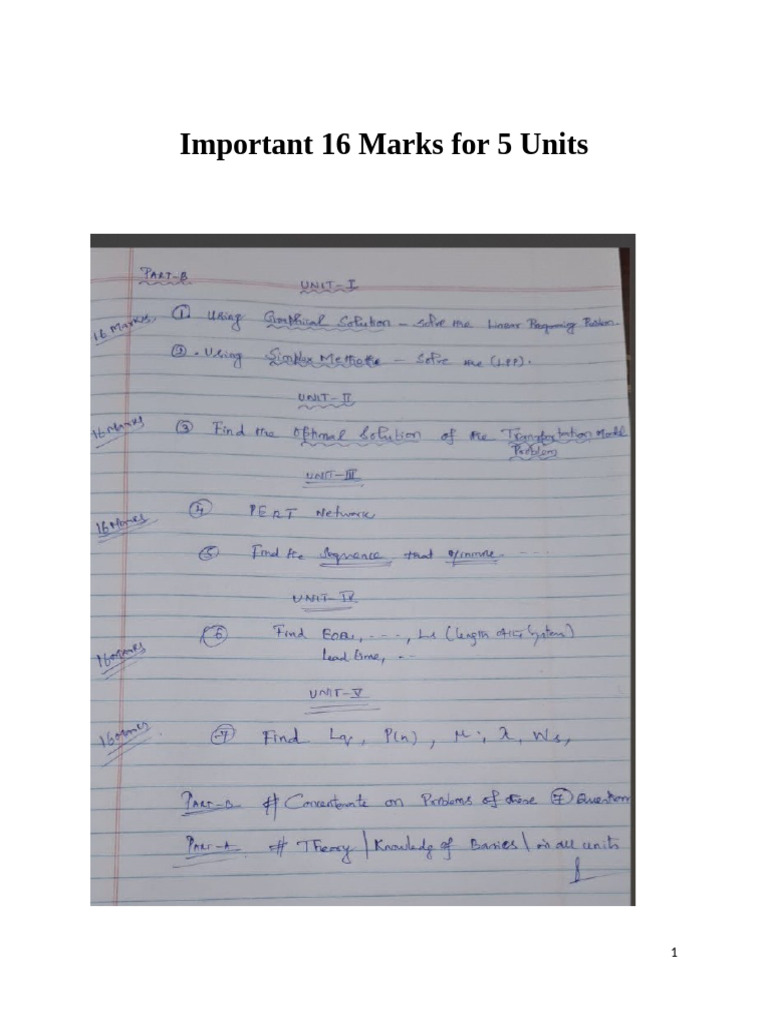 Important 16 Marks for 5 Units
PART-B
UNIT-I
16 Marks. ① Using Graphical Solution - Solve the Linear Programing Problem.
②. Using Simplex Methode - Solve the (LPP).
UNIT-II
16 Marks ③ Find the Optimal Solution of the Transportation Model
Problem
UNIT-III
16 Marks ④ PERT Network
⑤ Find the Sequence that minimize - - - -
UNIT-IV
16 Marks ⑥ Find EOQ, - - - -, Ls (length of System)
lead time, - -
UNIT-V
16 Marks ⑦ Find Lq, P(n), μ, λ, Ws,
PART-B # Concentrate on Problems of these ⑦ Question
PART-A # Theory / Knowledg of Basics \ in all units
1